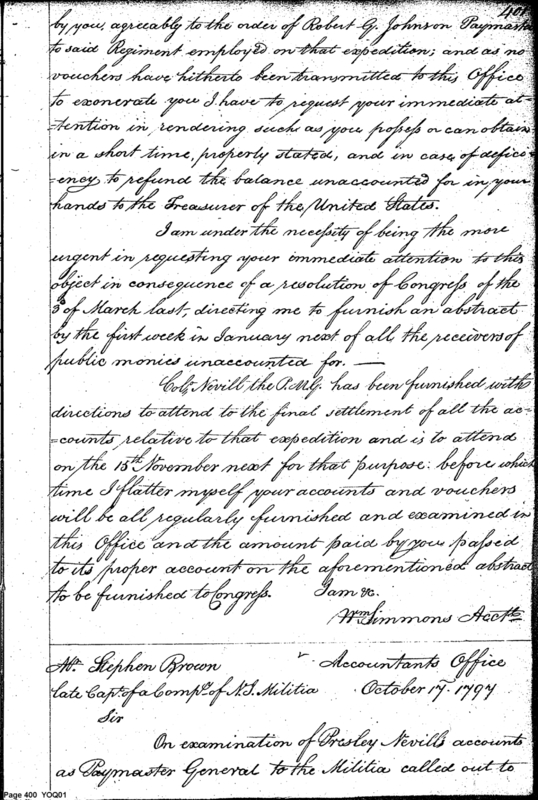 401
by you, agreeably to the order of Robert G. Johnson Paymaster
to said Regiment employed on that expedition; and as no
vouchers have hitherto been transmitted to this Office
to exonerate you I have to request your immediate at-
=tention in rendering such as you possess or can obtain
in a short time, properly stated, and in case of defici-
=ency to refund the balance unaccounted for in your
hands to the Treasurer of the United States.
I am under the necessity of being the more
urgent in requesting your immediate attention to this
object in consequence of a resolution of Congress of the
3d of March last, directing me to furnish an abstract
by the first week in January next of all the receivers of
public monies unaccounted for. —
Colo. Nevill the P.M.G. has been furnished with
directions to attend to the final settlement of all the ac-
=counts relative to that expedition and is to attend
on the 15th November next for that purpose: before which
time I flatter myself your accounts and vouchers
will be all regularly furnished and examined in
this Office and the amount paid by you passed
to its proper account on the aforementioned abstract
to be furnished to Congress. I am &c.
Wm Simmons Acctt
Mr. Stephen Brown Accountants Office
late Capt. of a Compy. of N.J. Militia October 17th 1797
Sir
On examination of Presley Nevill's accounts
as Paymaster General to the Militia called out to
Page 400 YOQ01